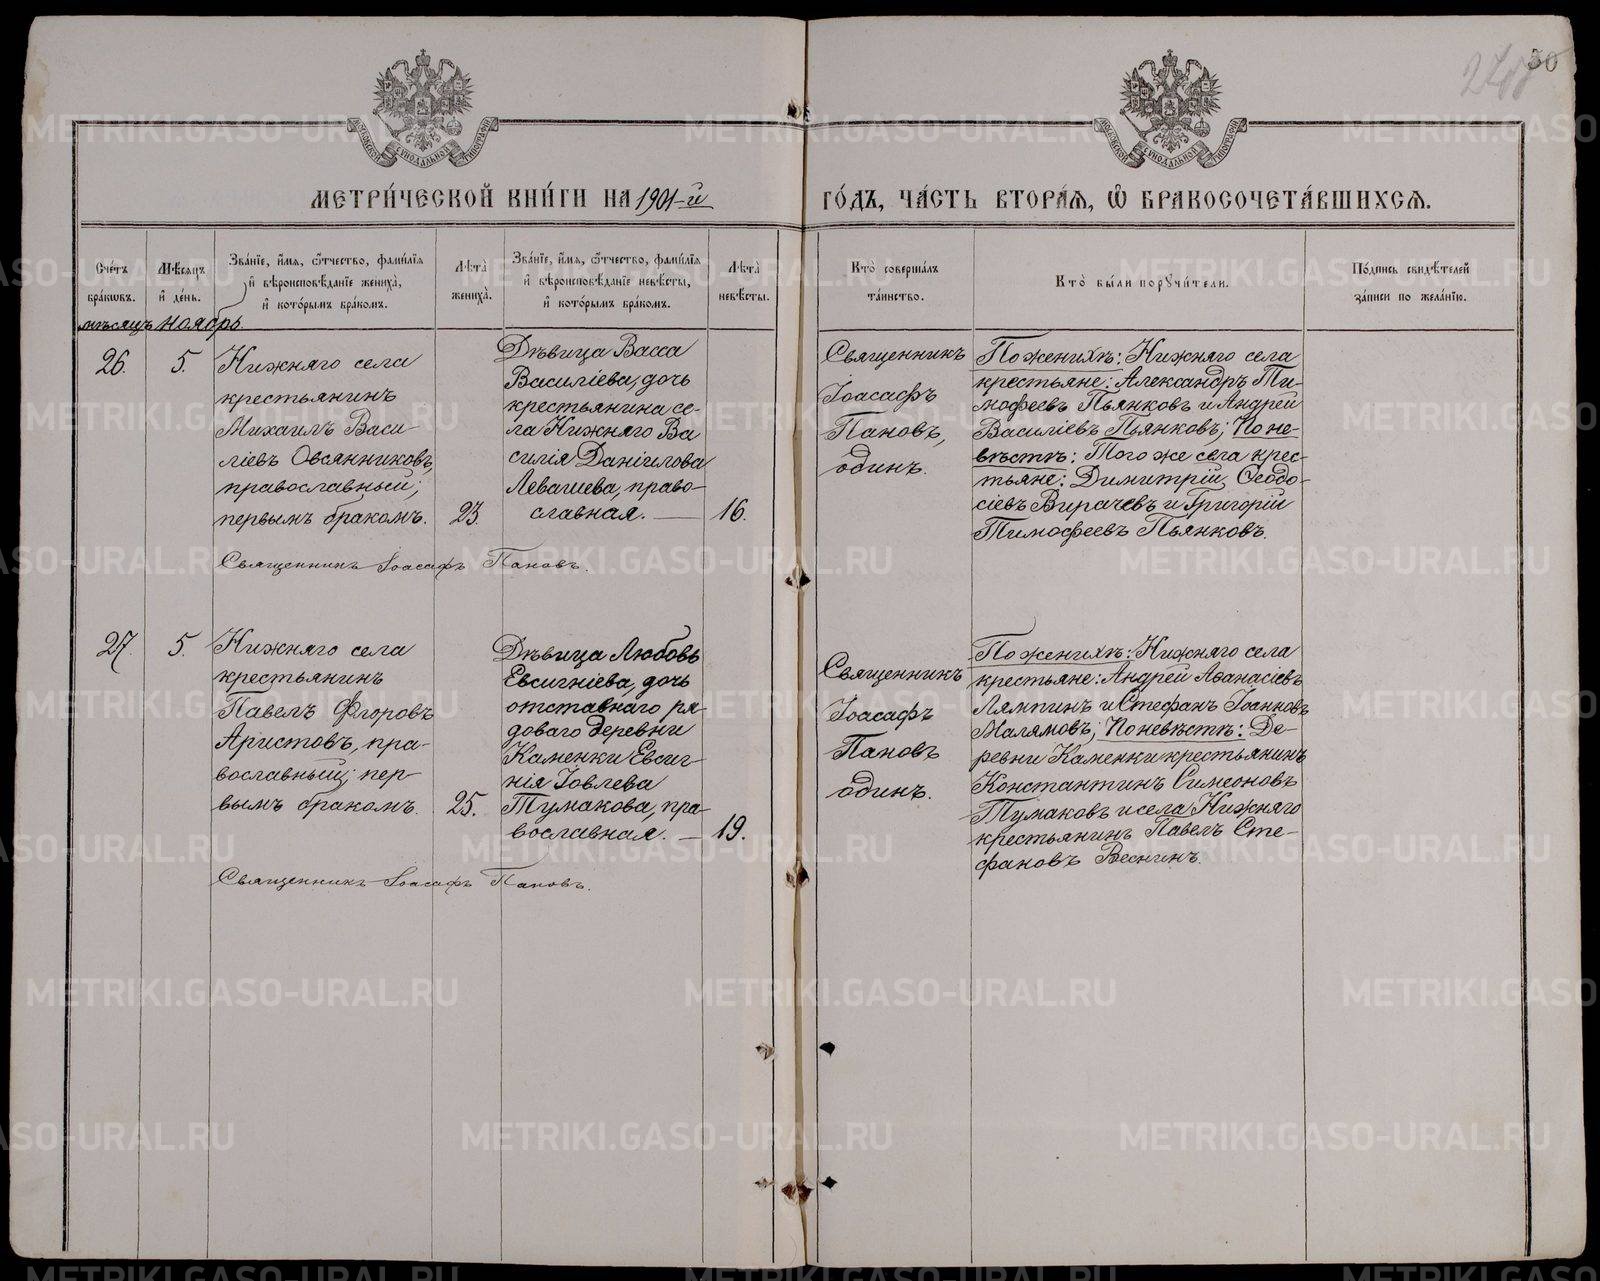 50
МЕТРИ́ЧЕСКОЙ КНИ́ГИ НА 1901-й
ГО́ДЪ, ЧА́СТЬ ВТОРА́Я, Ѿ БРАКОСОЧЕТА́ВШИХСЯ.
Сче́тъ бра́кѡвъ.
Мѣ́сяцъ и҆ де́нь.
Зва́нїе, и҆́мя, ѻ҆́тчество, фами́лїя и҆ вѣроисповѣ́данїе жениха̀, и҆ кото́рымъ бра́комъ.
Лѣ́та жениха̀.
Зва́нїе, и҆́мя, ѻ҆́тчество, фами́лїя и҆ вѣроисповѣ́данїе невѣ́сты, и҆ кото́рымъ бра́комъ.
Лѣ́та невѣ́сты.
Кто̀ соверша́лъ та́инство.
Кто̀ бы́ли поручи́тели.
По́дпись свидѣ́телей за́писи по жела́нїю.
мѣсяцъ ноябрь.
26.
5.
Нижняго села
крестьянинъ
Михаилъ Васи-
ліевъ Овсянниковъ,
православный;
первымъ бракомъ.
23.
Дѣвица Васса
Василіева, дочь
крестьянина се-
ла Нижняго Ва
силія Даніилова
Левашева, право-
славная. —
16.
Священникъ
Іоасафъ
Пановъ,
одинъ.
По женихѣ: Нижняго села
крестьяне: Александръ Ти-
мофеевъ Пьянковъ и Андрей
Василіевъ Пьянковъ; По не-
вѣстѣ: Того же села крес-
тьяне: Димитрій Ѳеодо-
сіевъ Вирачевъ и Григорій
Тимофеевъ Пьянковъ.
Священникъ Іоасафъ Пановъ.
27.
5.
Нижняго села
крестьянинъ
Павелъ Фроровъ
Аристовъ, пра-
вославный; пер-
вымъ бракомъ.
25.
Дѣвица Любовь
Евсигніева, дочь
отставнаго ря-
доваго деревни
Каменки Евсиг-
нія Іовлева
Тумакова, пра-
вославная. —
19.
Священникъ
Іоасафъ
Пановъ
одинъ.
По женихѣ: Нижняго села
крестьяне: Андрей Аѳанасіевъ
Лямпинъ и Стефанъ Іоанновъ
Малямовъ; По невѣстѣ: Де-
ревни Каменки крестьянинъ
Константинъ Симеоновъ
Тумаковъ и села Нижняго
крестьянинъ Павелъ Сте-
фановъ Веснинъ.
Священникъ Іоасафъ Пановъ.
METRIKI.GASO-URAL.RU